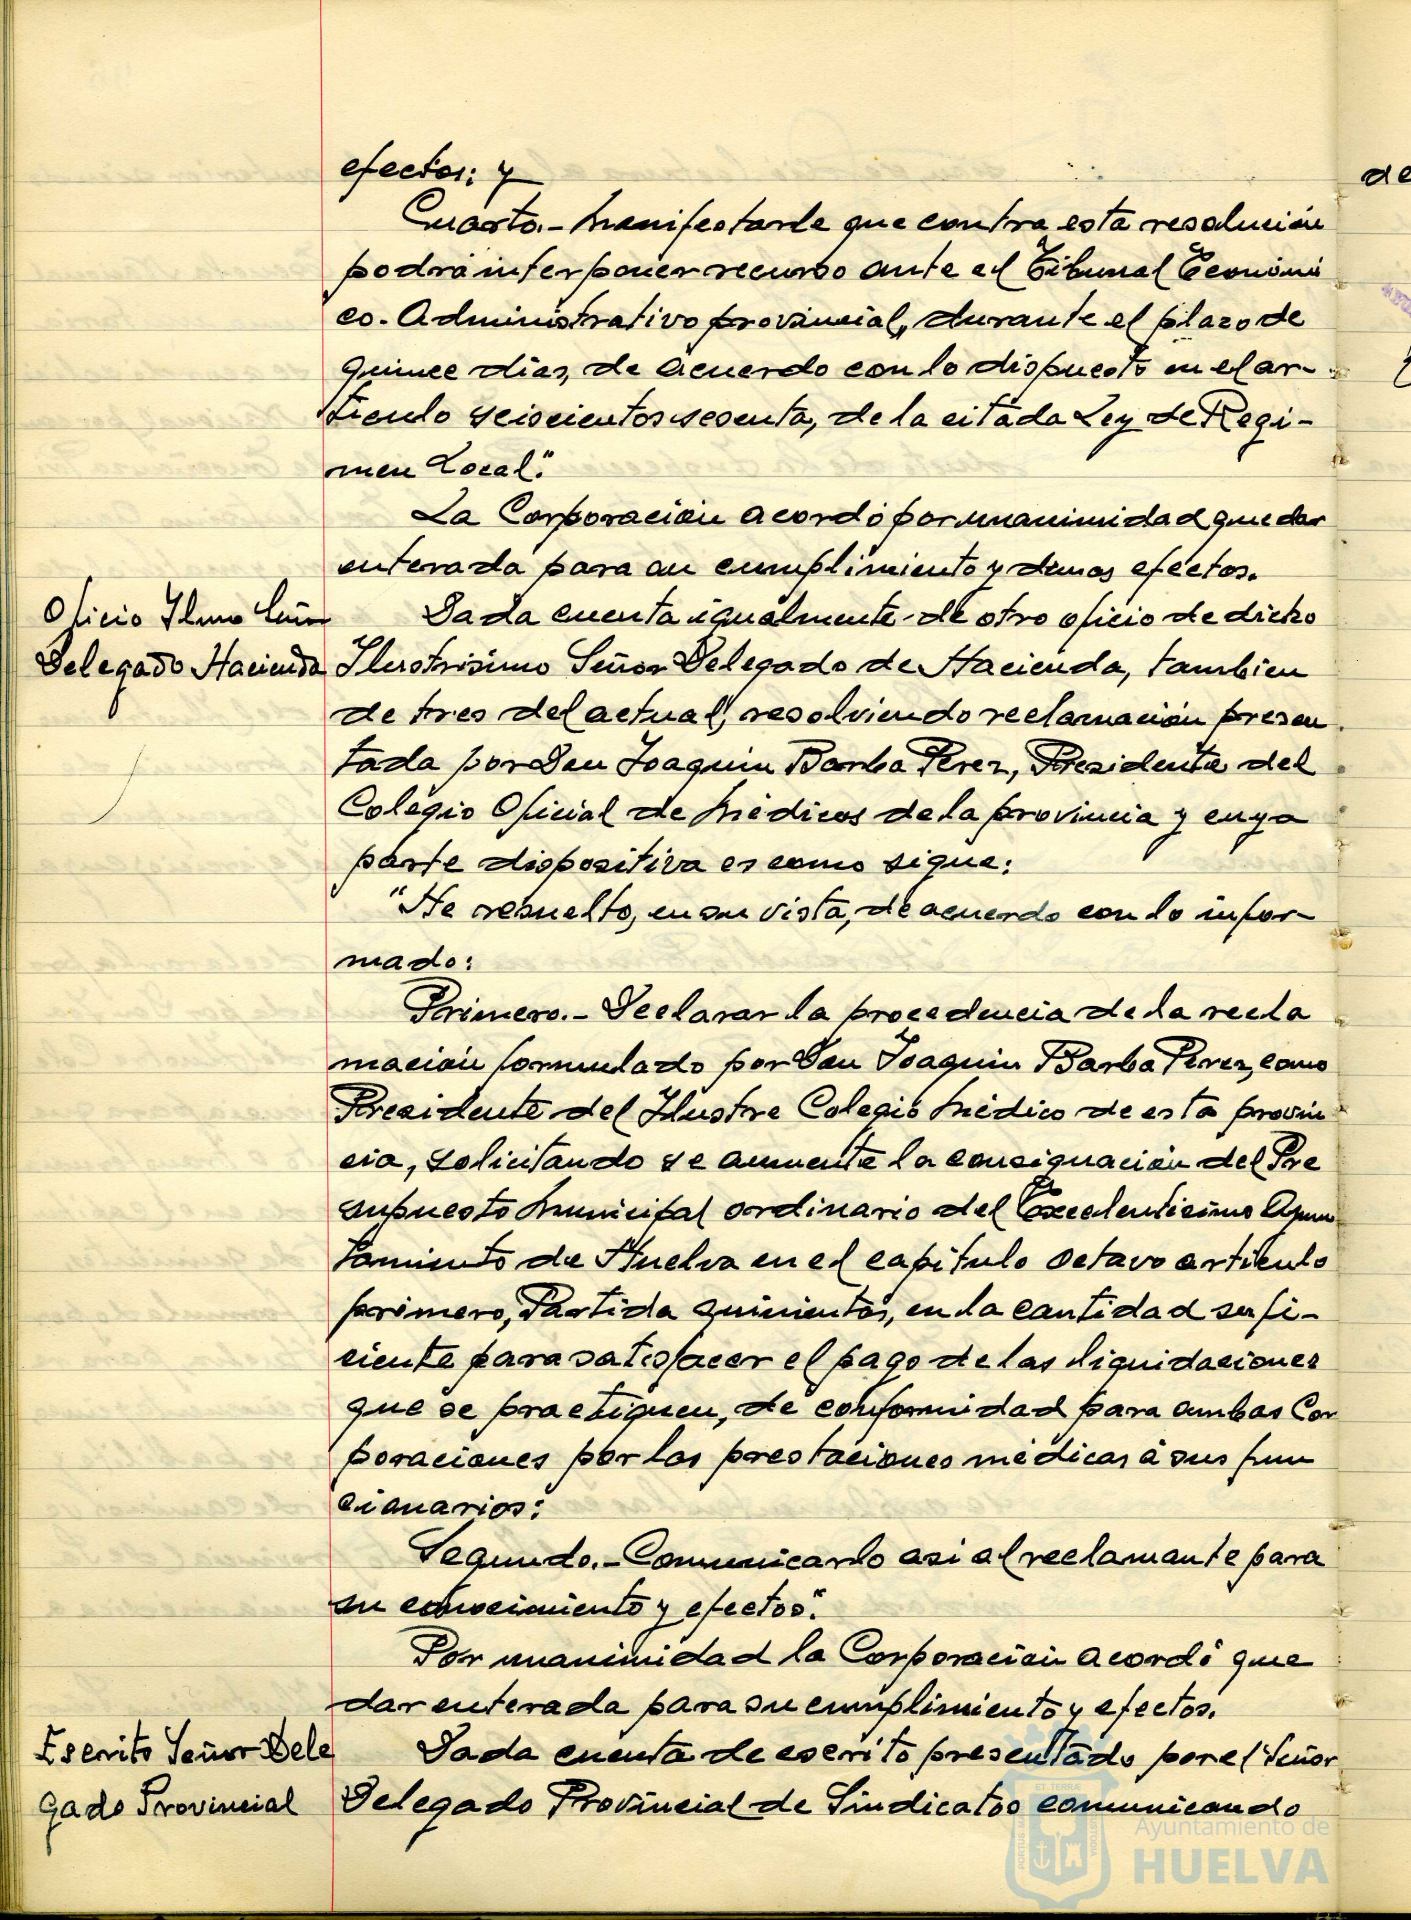 efectos; y
Cuarto.- Manifestarle que contra esta resolución
podrá interponer recurso ante el Tribunal Económi
co-Administrativo provincial, durante el plazo de
quince dias, de acuerdo con lo dispuesto en el ar-
tículo seiscientos sesenta, de la citada Ley de Regi-
men Local."
La Corporación acordó por unanimidad quedar
enterada para su cumplimiento y demas efectos.
Oficio Ilmo Señor
Delegado Hacienda
Dada cuenta igualmente de otro oficio de dicho
Ilustrisimo Señor Delegado de Hacienda, tambien
de tres del actual, resolviendo reclamación presen
tada por Don Joaquin Barba Perez, Presidente del
Colegio Oficial de Médicos de la provincia y cuya
parte dispositiva es como sigue:
"He resuelto, en su vista, de acuerdo con lo infor-
mado:
Primero.- Declarar la procedencia de la recla
mación formulado por Don Joaquin Barba Perez, como
Presidente del Ilustre Colegio Médico de esta provin
cia, solicitando se aumente la consignación del Pre
supuesto Municipal ordinario del Excelentísimo Ayun
tamiento de Huelva en el capítulo octavo artículo
primero, Partida quinientos, en la cantidad sufi-
ciente para satisfacer el pago de las liquidaciones
que se practiquen, de conformidad para ambas Cor
poraciones por las prestaciones médicas á sus fun
cionarios:
Segundo.- Comunicarlo asi al reclamante para
su conocimiento y efectos".
Por unanimidad la Corporación acordó que
dar enterada para su cumplimiento y efectos.
Escrito Señor Dele
gado Provincial
Dada cuenta de escrito presentado por el Señor
Delegado Provincial de Sindicatos comunicando
de
Ayuntamiento de
HUELVA